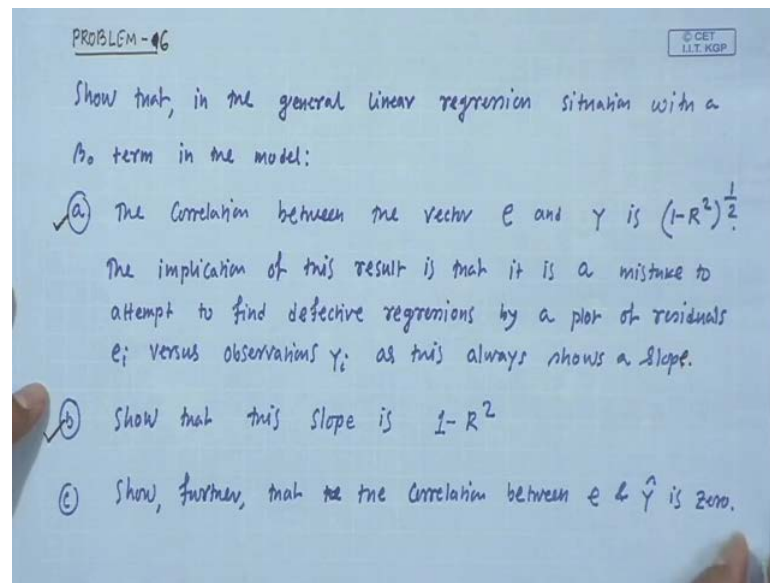 PROBLEM - 16
© CET
I.I.T. KGP
Show that, in the general linear regression situation with a
β₀ term in the model:
(a) The Correlation between the vector e and Y is (1-R²)^½.
The implication of this result is that it is a mistake to
attempt to find defective regressions by a plot of residuals
eᵢ versus observations Yᵢ as this always shows a slope.
(b) Show that this slope is 1-R²
(c) Show, further, that the correlation between e & Ŷ is zero.